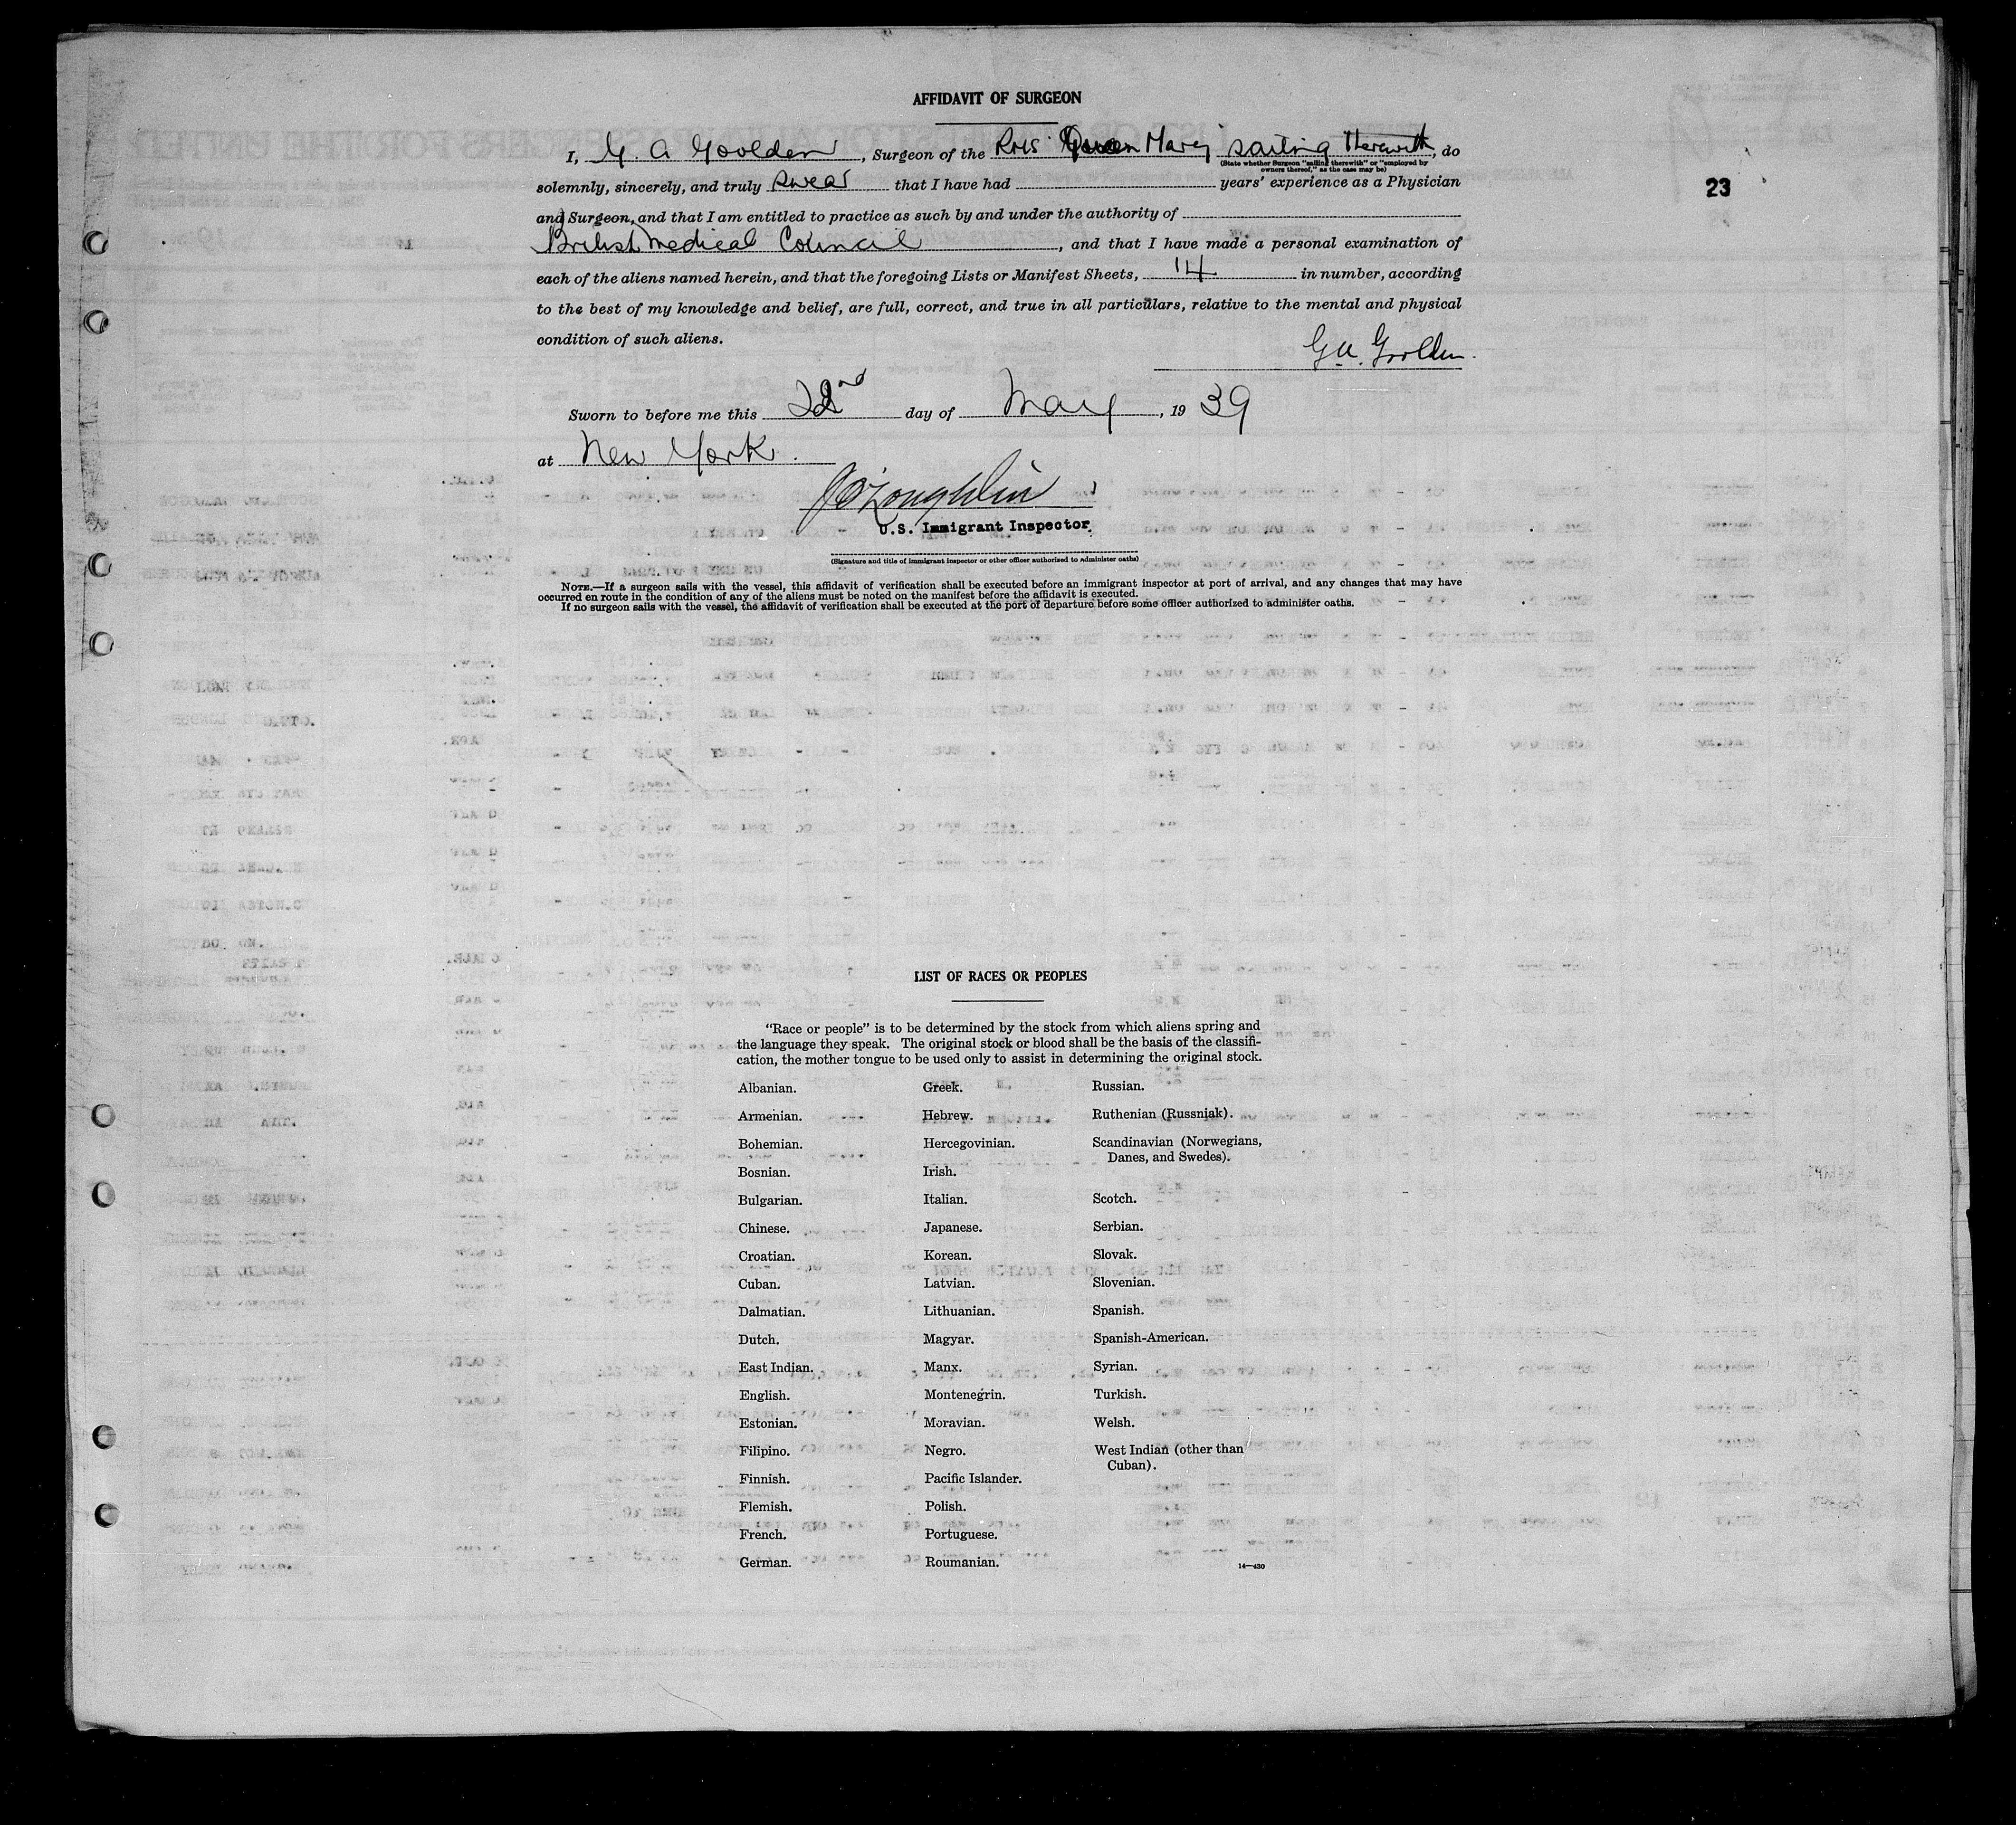 AFFIDAVIT OF SURGEON
I, G. A Goolden, Surgeon of the RMS Queen Mary sailing therewith, do
(State whether Surgeon "sailing therewith" or "employed by
owners thereof," as the case may be)
solemnly, sincerely, and truly swear that I have had years' experience as a Physician
23
and Surgeon, and that I am entitled to practice as such by and under the authority of
British Medical Council, and that I have made a personal examination of
each of the aliens named herein, and that the foregoing Lists or Manifest Sheets, 14 in number, according
to the best of my knowledge and belief, are full, correct, and true in all particulars, relative to the mental and physical
condition of such aliens.
G.A. Goolden.
Sworn to before me this 22nd day of May, 1939
at New York.
O'Loughlin
U.S. Immigrant Inspector
(Signature and title of immigrant inspector or other officer authorized to administer oaths)
NOTE.—If a surgeon sails with the vessel, this affidavit of verification shall be executed before an immigrant inspector at port of arrival, and any changes that may have
occurred en route in the condition of any of the aliens must be noted on the manifest before the affidavit is executed.
If no surgeon sails with the vessel, the affidavit of verification shall be executed at the port of departure before some officer authorized to administer oaths.
LIST OF RACES OR PEOPLES
"Race or people" is to be determined by the stock from which aliens spring and
the language they speak. The original stock or blood shall be the basis of the classifi-
cation, the mother tongue to be used only to assist in determining the original stock.
Albanian.
Armenian.
Bohemian.
Bosnian.
Bulgarian.
Chinese.
Croatian.
Cuban.
Dalmatian.
Dutch.
East Indian.
English.
Estonian.
Filipino.
Finnish.
Flemish.
French.
German.
Greek.
Hebrew.
Hercegovinian.
Irish.
Italian.
Japanese.
Korean.
Latvian.
Lithuanian.
Magyar.
Manx.
Montenegrin.
Moravian.
Negro.
Pacific Islander.
Polish.
Portuguese.
Roumanian.
Russian.
Ruthenian (Russniak).
Scandinavian (Norwegians,
Danes, and Swedes).
Scotch.
Serbian.
Slovak.
Slovenian.
Spanish.
Spanish-American.
Syrian.
Turkish.
Welsh.
West Indian (other than
Cuban).
14—430